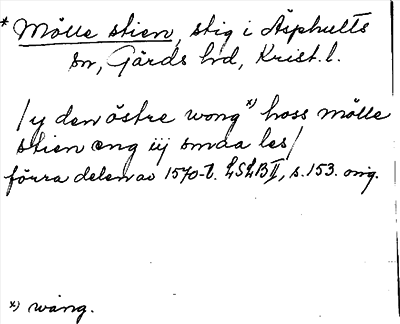 * Mölle stien, stig i Äsphults
sn, Gärds hd, Krist. l.
/y den östre wong *) hoss mölle
stien eng iij smaa les/
förra delen av 1570-t. LSLB II, s. 153. orig.
*) wång.